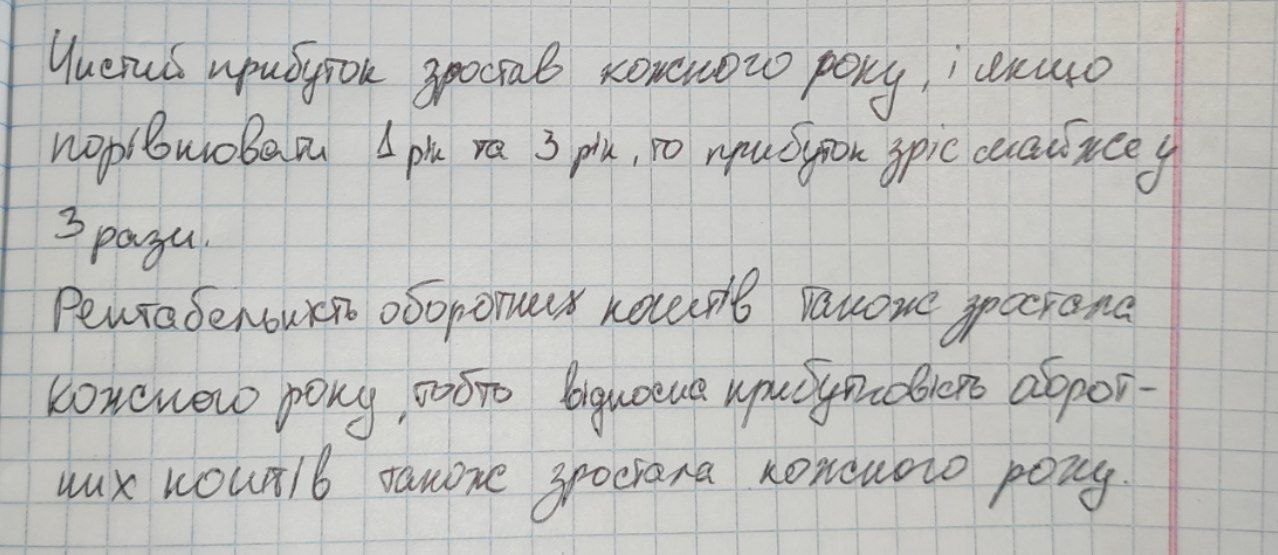 Чистий прибуток зростав кожного року, і якщо
порівнювати 1 рік та 3 рік, то прибуток зріс майже у
3 рази.
Рентабельність оборотних коштів також зростала
кожного року, тобто відносна прибутковість оборот-
них коштів також зростала кожного року.